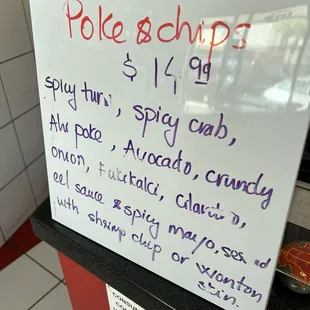 Poke & chips
$ 14.99
spicy tuna, spicy crab,
Ahi poke, Avocado, crundy
onion, Fukikaki, cilantro,
eel sauce & spicy mayo, sead
with shrimp chip or wonton
skin.